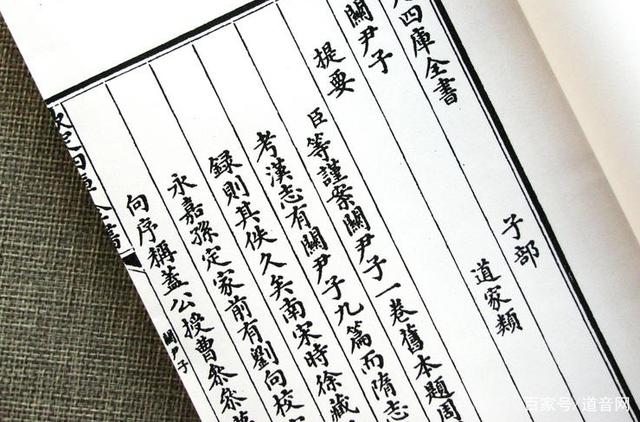 四庫全書
子部
道家類
關尹子
提要
臣等謹案關尹子一卷舊本題周
考漢志有關尹子九篇而隋志
録則其佚久矣南宋時徐蕆
永嘉孫定家前有劉向校
向序稱蓋公授曹參參薨
關尹子
欽定四庫全書
百家号/道音网